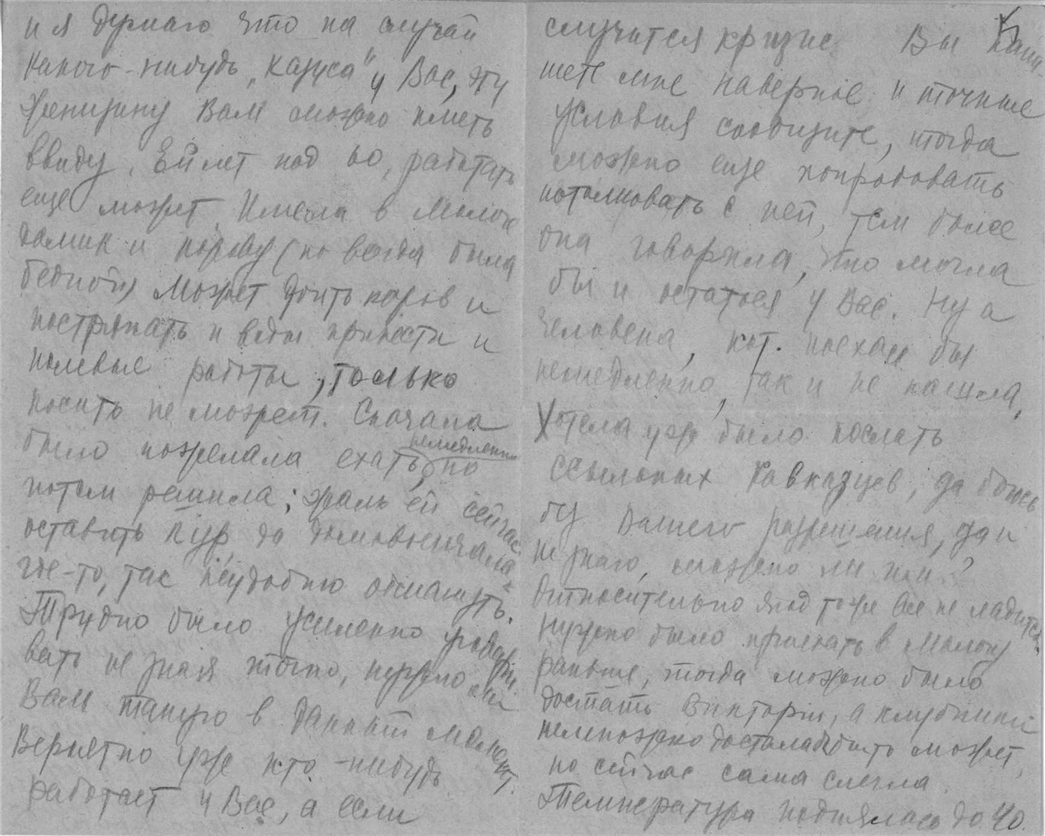 и я думаю что на случай
какого-нибудь „казуса" у Вас, эту
женщину Вам можно иметь
ввиду. Ей лет под 60, работать
еще может Имела в Мологе
домик и корову (но всегда была
беднотой) может доить коров и
постряпать и воды принести и
полевые работы, только
косить не может. Сначала
было пожелала ехать немедленно, но
потом решила; жаль ей сейчас
оставить кур да домовничала
где-то, так неудобно обмануть.
Трудно было усиленно уговари-
вать не зная точно, нужно ли
Вам такую в данный момент.
Вероятно уже кто-нибудь
работает у Вас, а если
случится кризис Вы напи-
шете мне наверное и точные
условия сообщите, тогда
можно еще попробовать
потолковать с ней, тем более
она говорила, что могла
бы и остаться у Вас. Ну а
человека, кот. поехал бы
немедленно, так и не нашла,
Хотела уже было послать
ссыльных Кавказцев, да боюсь
без Вашего разрешения, да и
не знаю, можно ли им?
Относительно ягод тоже все не ладится.
Нужно было приехать в Мологу
раньше, тогда можно было
достать Виктории, а клубники
немножко достала бы быть может,
но сейчас сама слегла.
Температура поднялась до 40.